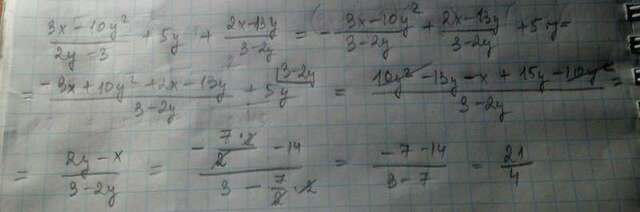 (3x-10y²)/(2y-3) + 5y + (2x-13y)/(3-2y) = -(3x-10y²)/(3-2y) + (2x-13y)/(3-2y) + 5y =
= (-3x+10y²+2x-13y)/(3-2y) + 5y (3-2y = (10y²-13y-x+15y-10y²)/(3-2y) =
= (2y-x)/(3-2y) = (-7/2·2-14)/(3-7/2·2) = (-7-14)/(3-7) = 21/4